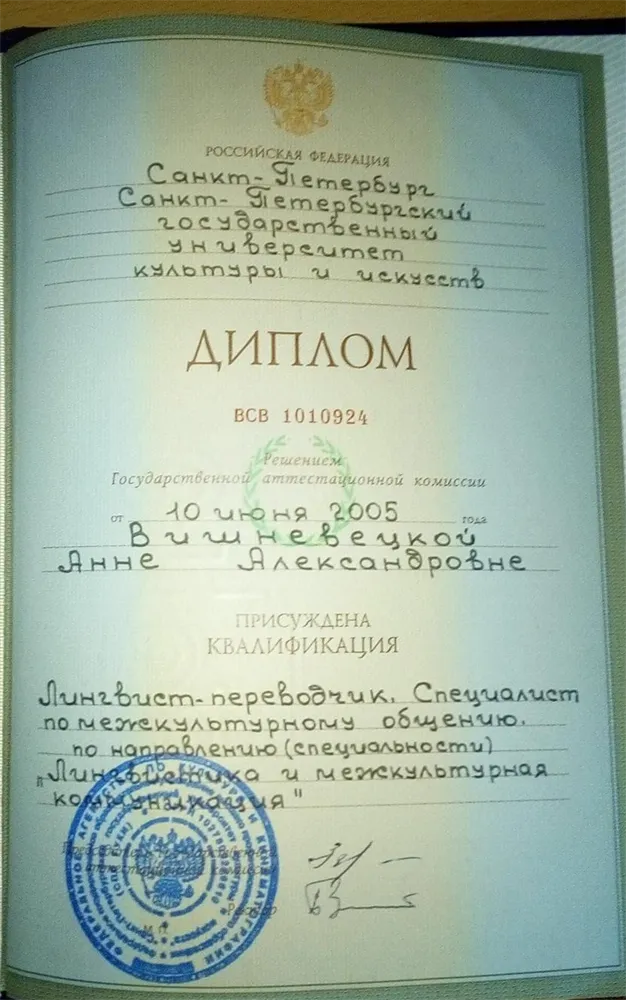 РОССИЙСКАЯ ФЕДЕРАЦИЯ
Санкт-Петербург
Санкт-Петербургский
государственный
университет
культуры и искусств
ДИПЛОМ
ВСВ 1010924
Решением
Государственной аттестационной комиссии
от 10 июня 2005 года
Вишневецкой
Анне Александровне
ПРИСУЖДЕНА
КВАЛИФИКАЦИЯ
Лингвист-переводчик. Специалист
по межкультурному общению.
по направлению (специальности)
"Лингвистика и межкультурная
коммуникация"
Председатель Государственной
аттестационной комиссии
Ректор
М.П.